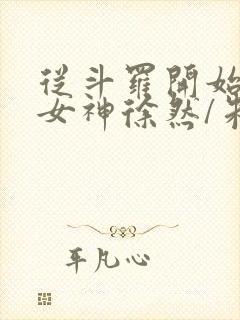 從斗羅開始
女神徐然/朱
平凡心